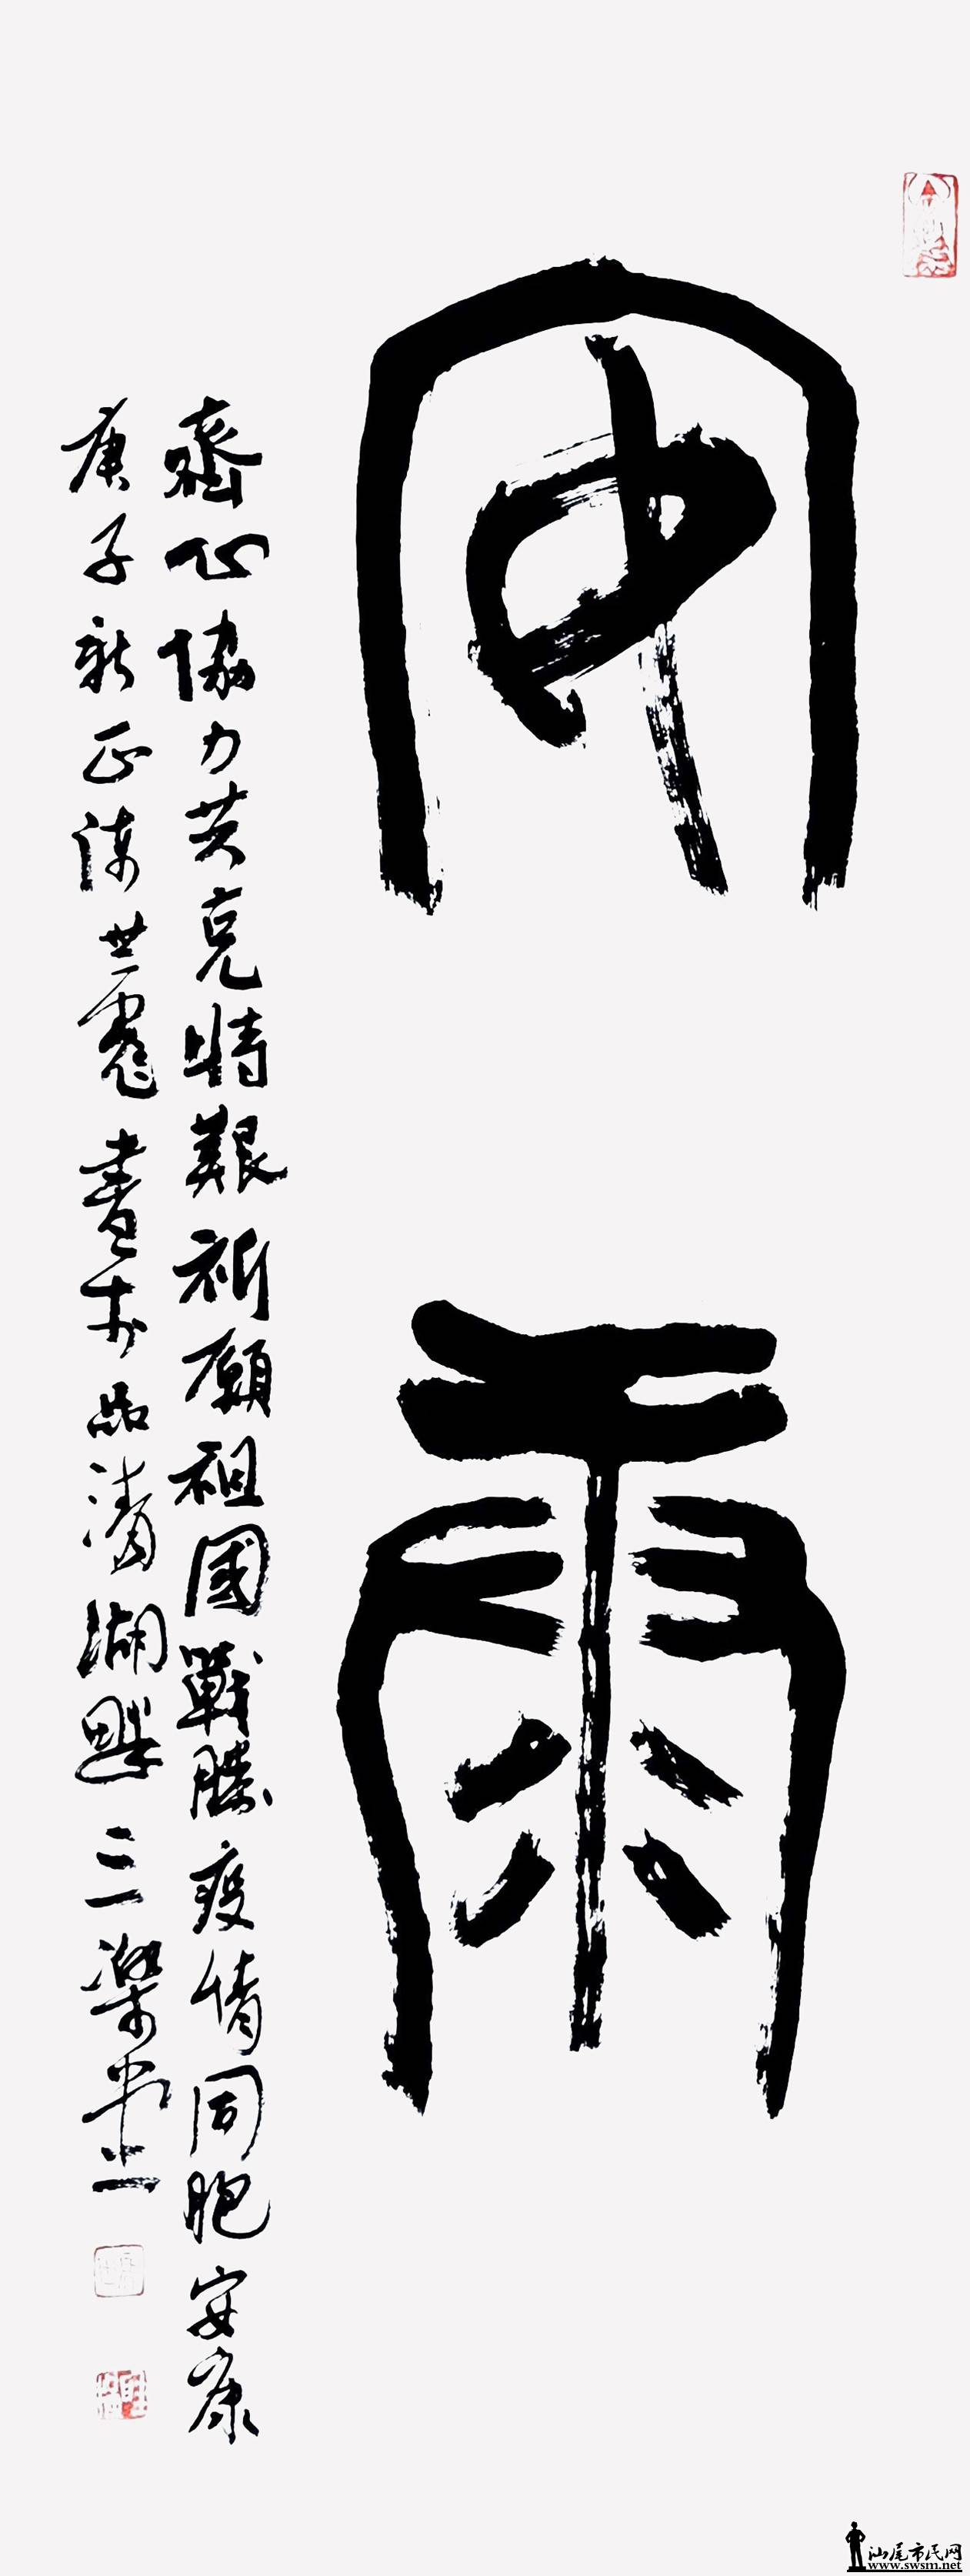 安康
齊心協力共克時艱祈願祖國戰勝疫情同胞安康
庚子新正陳世彪書於品清湖畔三樂堂上
汕尾市民网
www.swsm.net